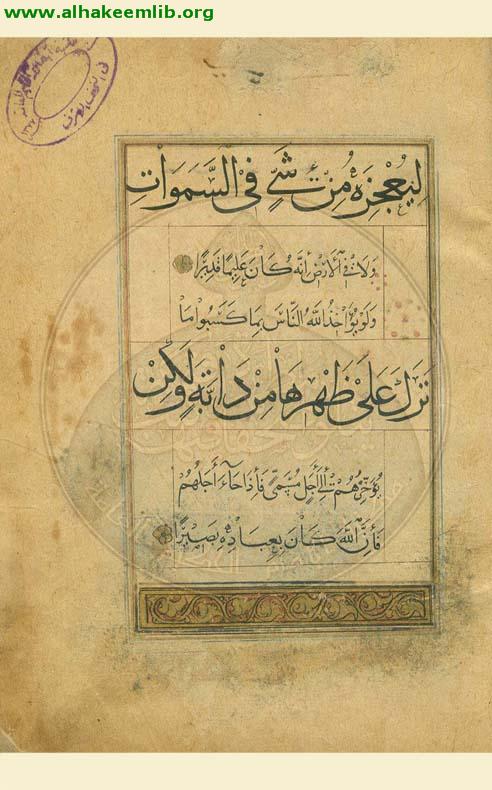 www.alhakeemlib.org
لِيُعْجِزَهُ مِنْ شَيْءٍ فِي السَّمَوَاتِ
وَلَا فِي الْأَرْضِ إِنَّهُ كَانَ عَلِيمًا قَدِيرًا
وَلَوْ يُؤَاخِذُ اللَّهُ النَّاسَ بِمَا كَسَبُوا مَا
تَرَكَ عَلَى ظَهْرِهَا مِنْ دَابَّةٍ وَلَكِنْ
يُؤَخِّرُهُمْ إِلَى أَجَلٍ مُسَمًّى فَإِذَا جَاءَ أَجَلُهُمْ
فَإِنَّ اللَّهَ كَانَ بِعِبَادِهِ بَصِيرًا